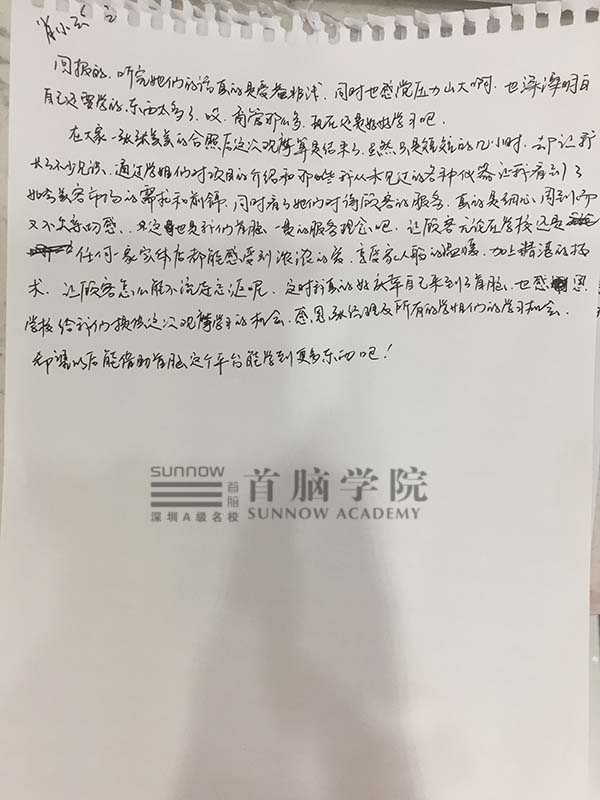 肖小云 2
回报的，听完她们的话真的是受益非浅，同时也感觉压力山大啊，也深深明白
自己还要学的东西太多了，哎，甭管那么多，现在还是好好学习吧。
在大家一张张美美的合照后这次观摩算是结束了，虽然只是短短的几小时，却让我
长了不少见识，通过学姐们对项目的介绍和那些我从未见过的各种仪器让我看到了
如今美容市场的需求和前景，同时看了她们对待顾客的服务，真的是细心、周到而
又不失亲切感，这也是我们首脑一贯的服务理念吧，让顾客无论在学校还是
任何一家实体店都能感受到浓浓的爱，享受家人般的温暖，加上精湛的技
术，让顾客怎么能不流连忘返呢，这时我真的好庆幸自己来到了首脑，也感恩
学校给我们提供这次观摩学习的机会，感恩张经理及所有的学姐们的学习机会。
希望以后能借助首脑这个平台能学到更多东西吧！
SUNNOW 首脑
深圳A级名校
首脑学院
SUNNOW ACADEMY